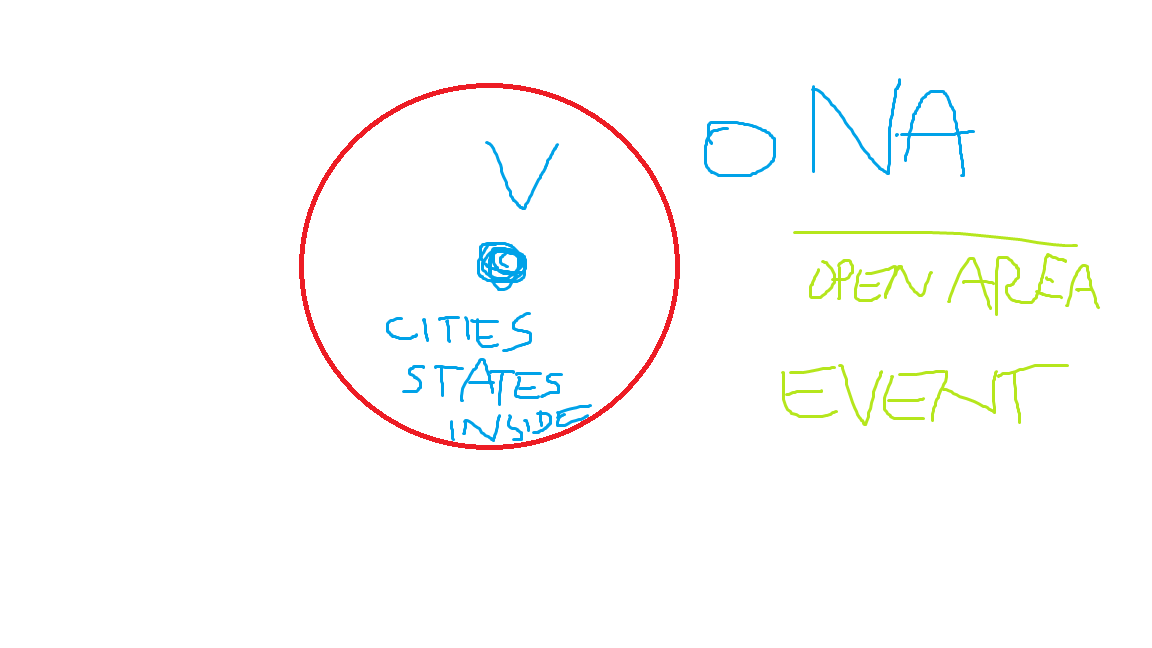 V
NA
CITIES
STATES
INSIDE
OPEN AREA
EVENT